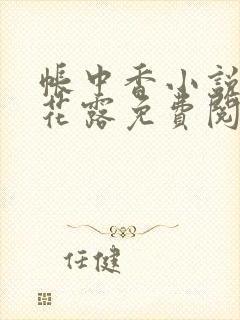 帳中香小說
花露免費閱
任健